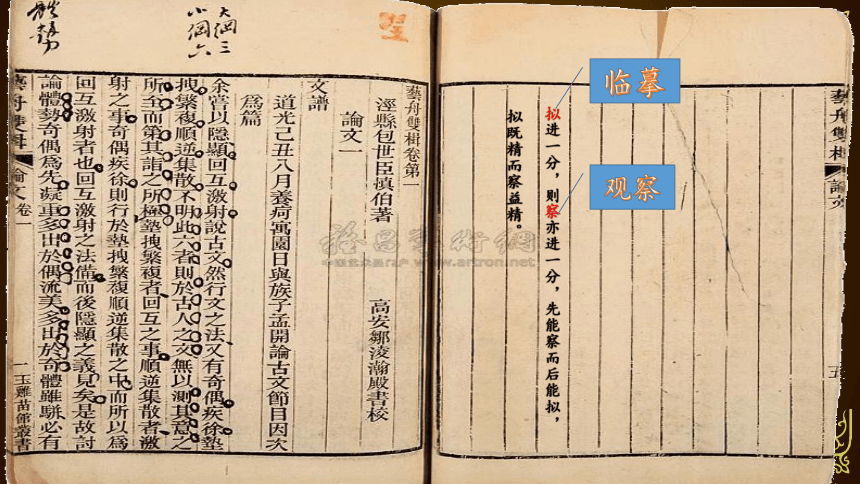 藝舟雙楫
論文
五
临摹
观察
拟进一分，则察亦进一分，先能察而后能拟，
拟既精而察益精。
藝舟雙楫卷第一
涇縣包世臣慎伯著 高安鄒淩瀚殿書校
論文一
文譜
道光己丑八月養疴寓園日與族子孟開論古文節目因次
爲篇
余嘗以隱顯回互激射說古文然行文之法又有奇偶疾徐墊
拽繁複順逆集散不明此六者則於古人之文無以測其意之
所至而第其詣之所極墊拽繁複者回互之事順逆集散者激
射之事奇偶疾徐則行於墊拽繁複順逆集散之中而所以爲
回互激射者也回互激射之法備而後隱顯之義見矣是故討
論體勢奇偶爲先凝重多出於偶流美多出於奇體雖駢必有
藝舟雙楫
論文 卷一
一 玉雞苗館叢書
大綱三
小綱六
體勢
www.artron.net